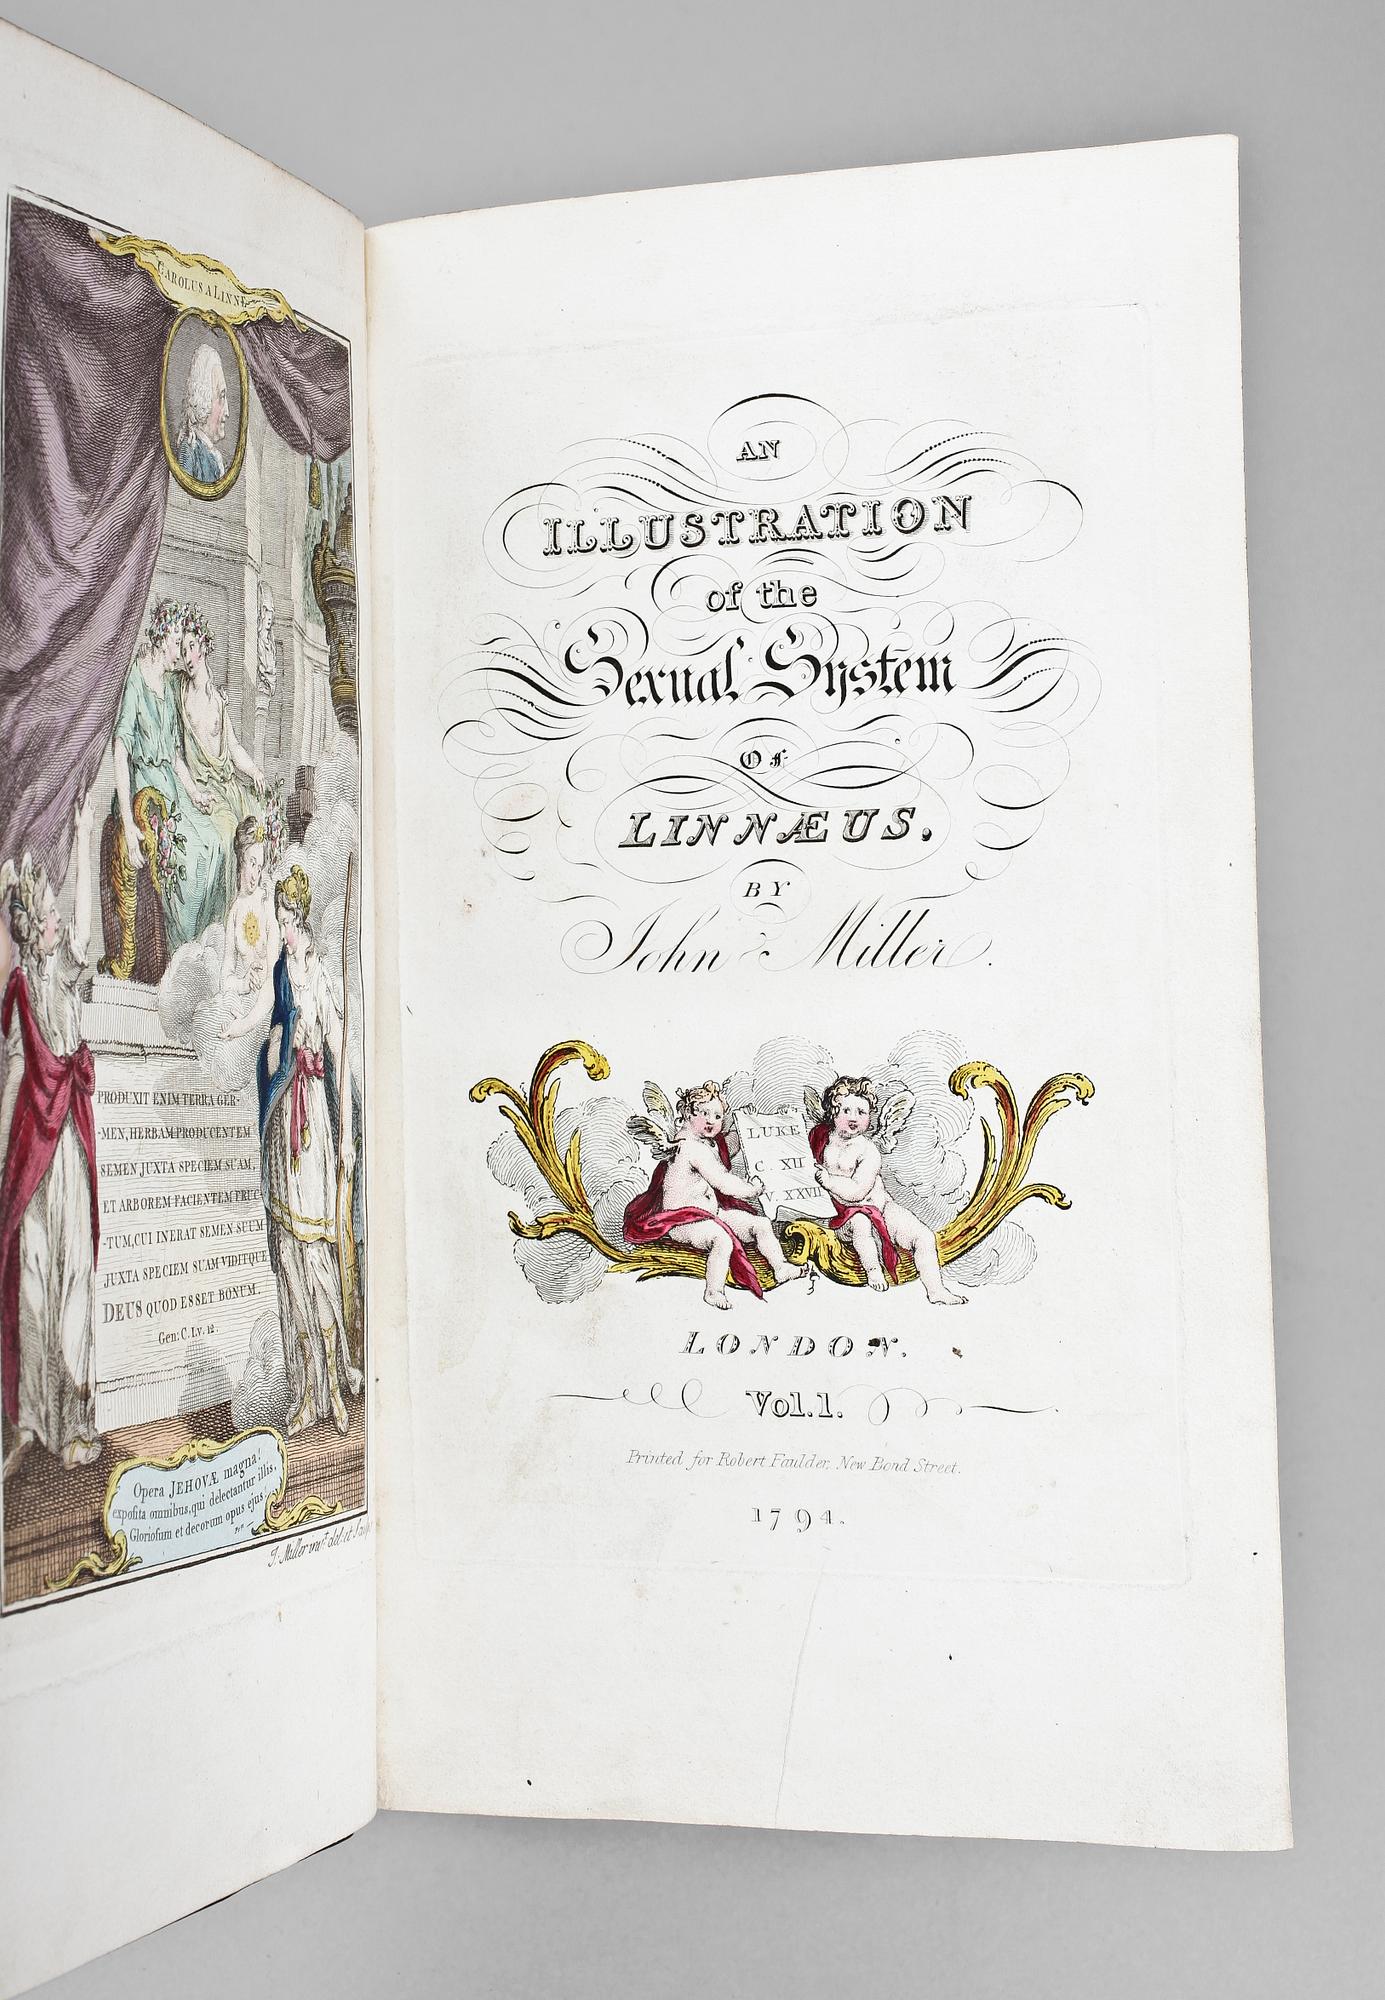 CAROLUS A LINNE
PRODUXIT ENIM TERRA GER-
-MEN, HERBAM PRODUCENTEM
SEMEN JUXTA SPECIEM SUAM,
ET ARBOREM FACIENTEM FRUC-
-TUM, CUI INERAT SEMEN SUUM
JUXTA SPECIEM SUAM VIDITQUE
DEUS QUOD ESSET BONUM.
Gen: C. I. v. 12.
Opera JEHOVÆ magna!
exposita omnibus, qui delectantur illis.
Gloriosum et decorum opus ejus!
J. Miller invt. del. et Sculp
AN
ILLUSTRATION
of the
Sexual System
OF
LINNÆUS.
BY
John Miller.
LUKE
C. XII
V. XXVII
LONDON.
Vol. 1.
Printed for Robert Faulder, New Bond Street.
1794.